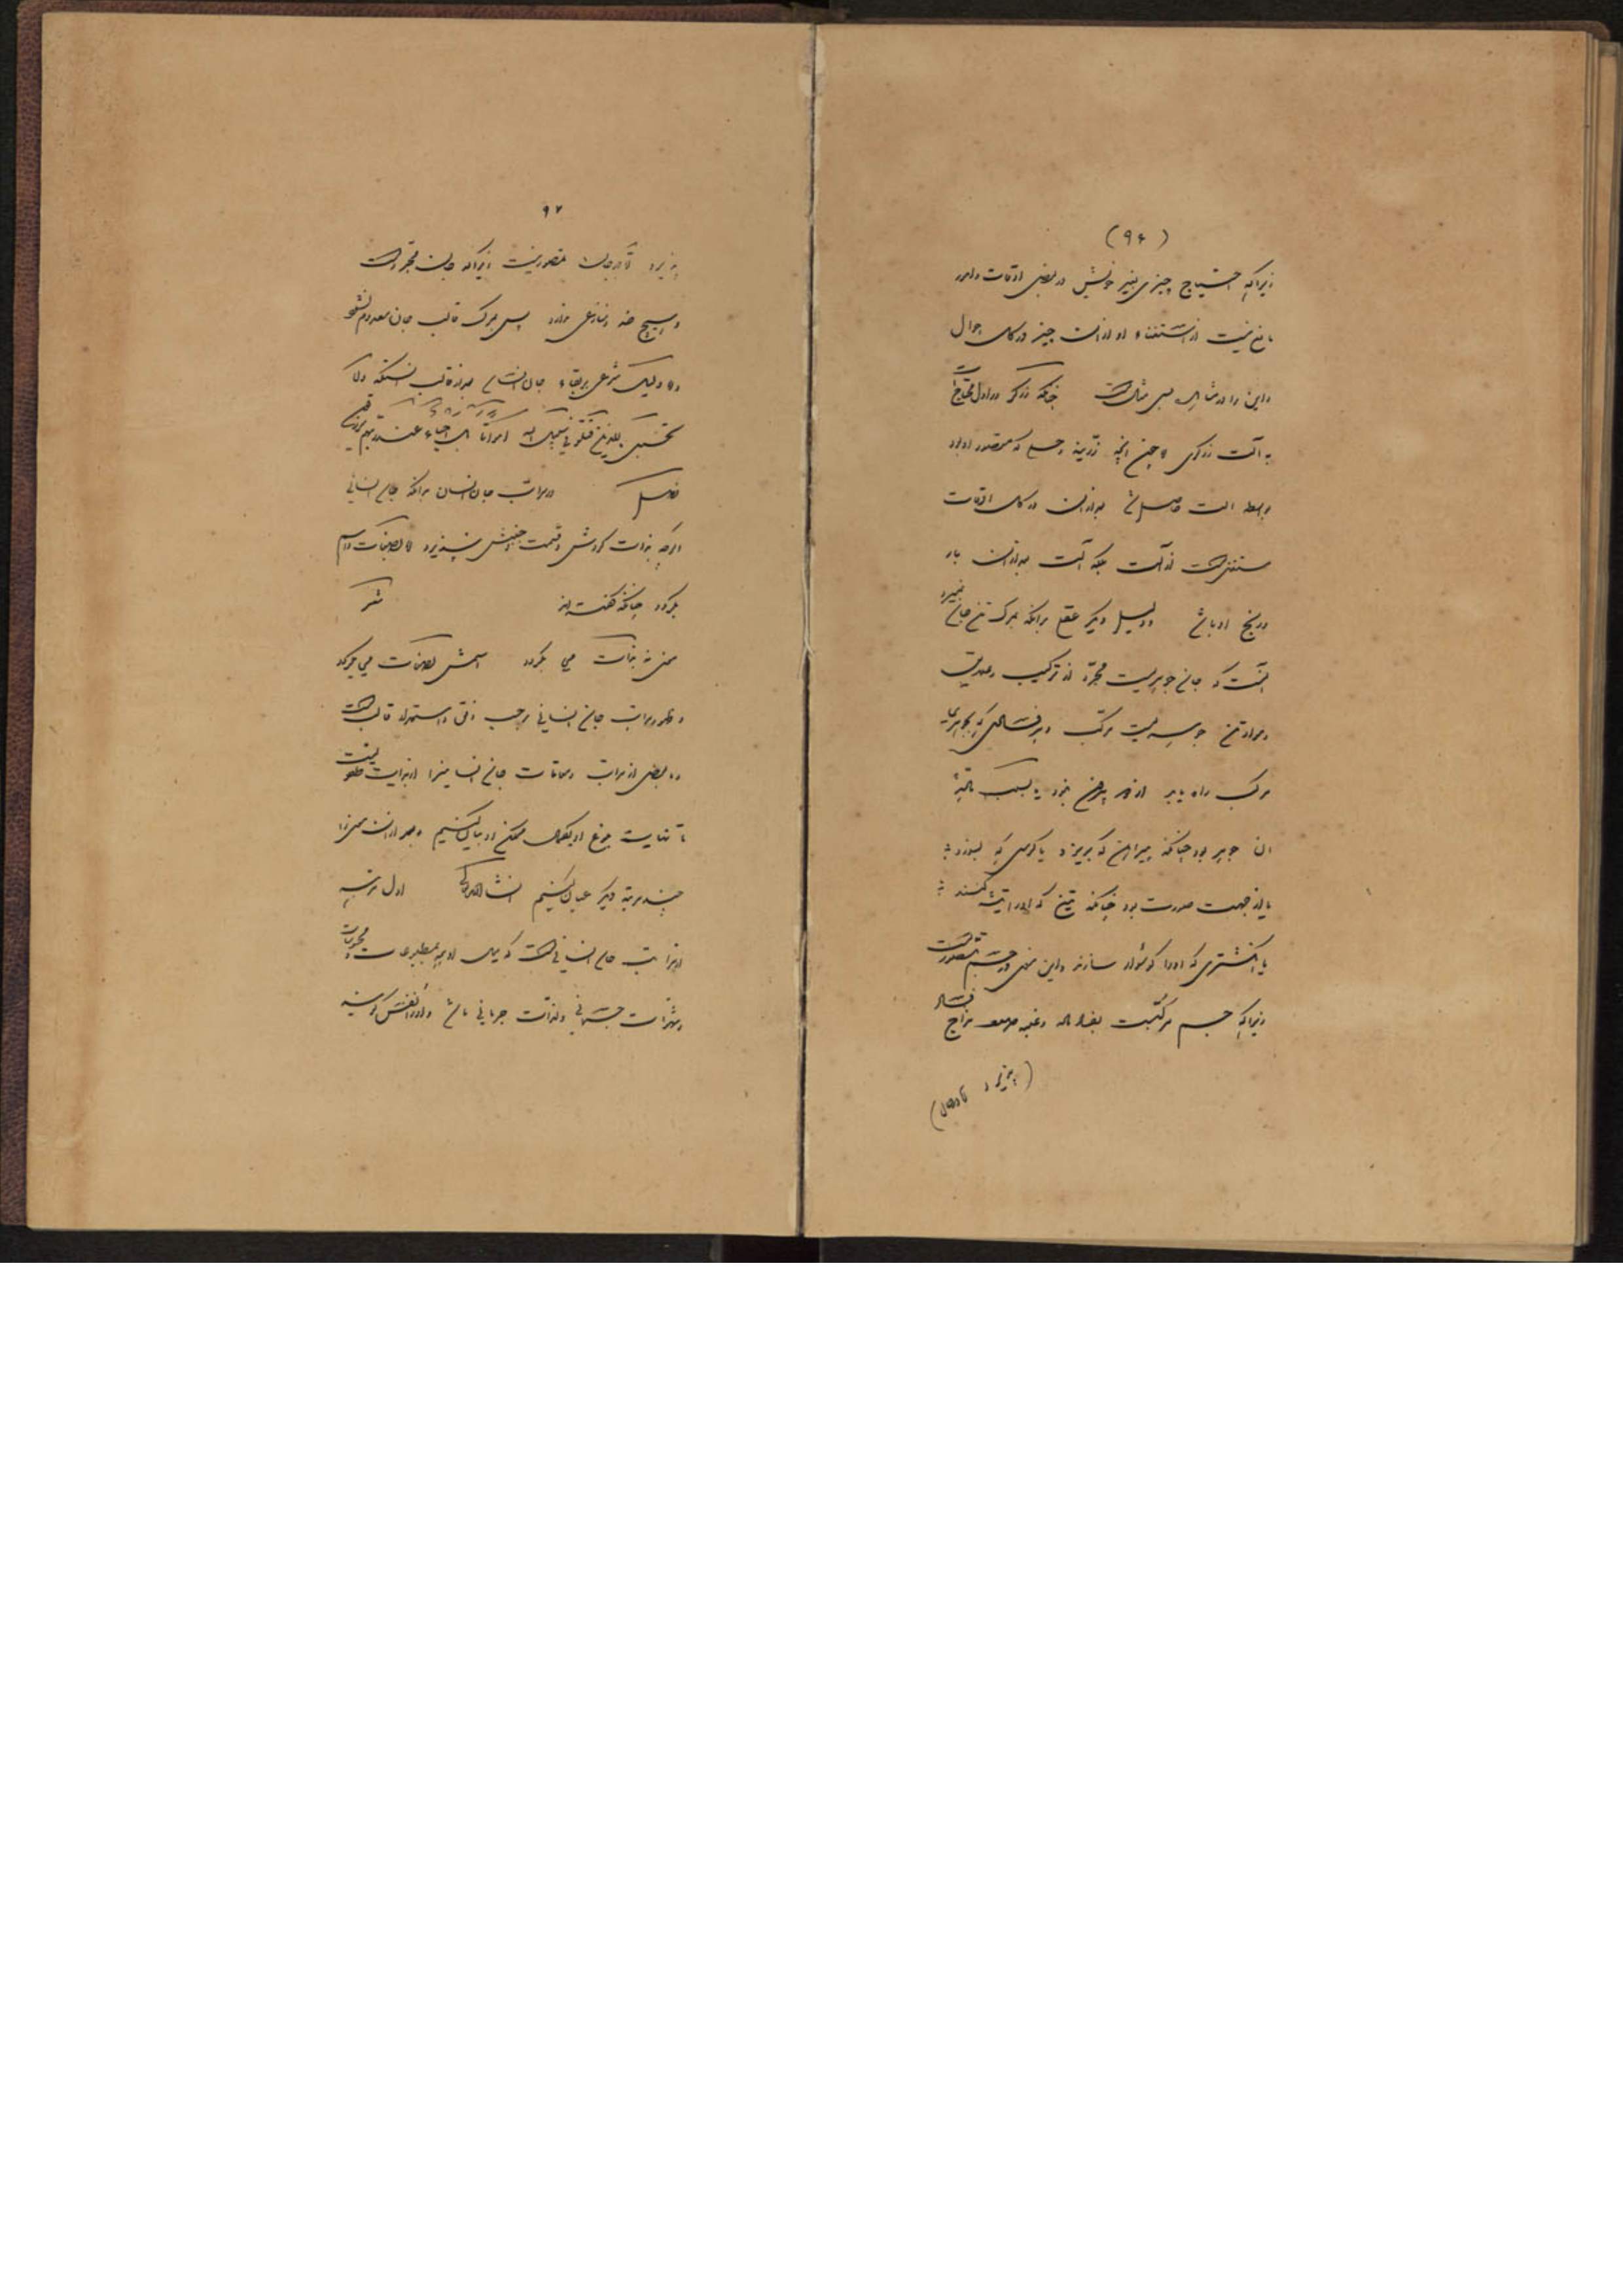 (۹۶)
زیراکه احتیاج چیزی بغیر خویش در بعضی اوقات و امور
مانع نیست از استغناء او از آن چیز در کل احوال
و این را در شاهد بسی مثال است چنانکه زرگر در اول محتاج است
به آلت زرگری تا چون آنچه زرینه و حلی که مقصود او بود
بواسطه آلت حاصل شد بعد از آن در کل اوقات
مستغنی است از آلت بلکه آلت بعد از آن بار
و رنج او باشد و دلیل دیگر عقلی برآنکه بمرگ تن جان نمیرد
آنست که جان جوهریست مجرد از ترکیب و
و مراد تن جوهریست مرکب و هر فسادی که بجوهری
مرکب راه یابد از دو بیرون نبود یا بسبب
آن جوهر بود چنانکه پیراهن که بریزد و یا کرسی که بسوزد
یا از جهت صورت بود چنانکه تیغ که او را تیشه کنند
یا انگشتری که او را گوشوار سازند و این معنی در جسم متصور است
زیراکه جسم مرکبست بفساد مزاج فساد
(پذیرد تا در جان)
۹۷
پذیرد تا در جان متصور نیست زیراکه جان مجرد است
و هیچ ضد و منازعی ندارد پس بمرگ قالب جان معدوم نشود
و اما دلیل شرعی بر بقاء جان انسانی بعد از قالب آنستکه ولا
تحسبن الذین قتلوا فی سبیل الله امواتا بل احیاء عند ربهم یرزقون
فصل در مراتب جان انسان برآنکه جان انسانی
اگرچه بذات گردش و قسمت و جنبش نپذیرد اما بصفات و اسم
بگردد چنانکه گفته‌اند شعر
معنی نه بذات می بگردد اسمش بصفات می بگردد
و ظهور مراتب جان انسانی بر حسب افق و استعداد قالب است
و ما بعضی از مراتب و مقامات جان انسانی را از بدایت
تا نهایت بلوغ او بکمال ممکن او بیان کنیم و بعد از آن معنی را
بچند مرتبه دیگر عیان کنیم انشاالله تعالی اول مرتبه
از مراتب جان انسانی است که میل او بمطبوعات و محبوبات
و شهوات جسمانی و لذات جرمانی باشد و او را نفس گویند